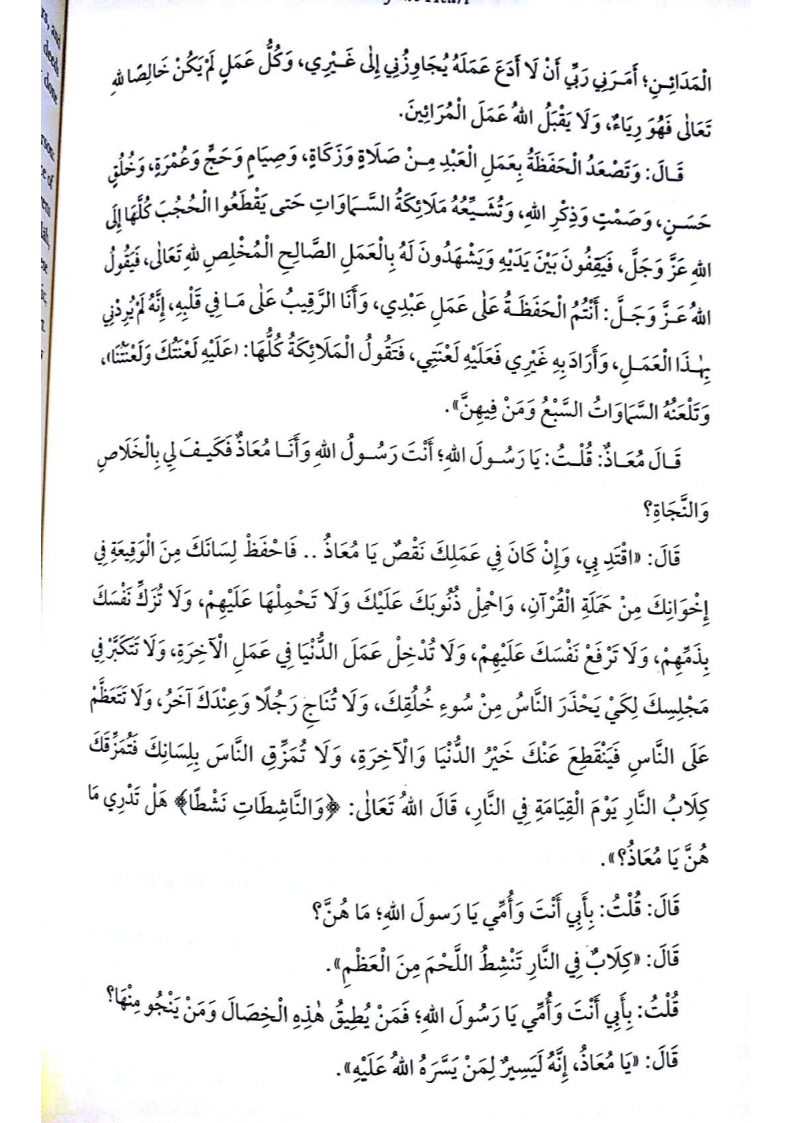 الْمَدَائِـنِ؛ أَمَرَنِي رَبِّي أَنْ لَا أَدَعَ عَمَلَهُ يُجَاوِزُنِي إِلَى غَـيْرِي، وَكُلُّ عَمَلٍ لَمْ يَكُنْ خَالِصًا لِلهِ
تَعَالَى فَهُوَ رِيَاءٌ، وَلَا يَقْبَلُ اللهُ عَمَلَ الْمُرَائِينَ.
قَـالَ: وَتَصْعَدُ الْحَفَظَةُ بِعَمَلِ الْعَبْدِ مِـنْ صَلَاةٍ وَزَكَاةٍ، وَصِيَامٍ وَحَجٍّ وَعُمْرَةٍ، وَخُلُقٍ
حَسَـنٍ، وَصَمْتٍ وَذِكْرِ اللهِ، وَتُشَـيِّعُهُ مَلَائِكَةُ السَّـمَاوَاتِ حَتى يَقْطَعُوا الْحُجُبَ كُلَّهَا إِلَى
اللهِ عَزَّ وَجَلَّ، فَيَقِفُونَ بَيْنَ يَدَيْهِ وَيَشْهَدُونَ لَهُ بِالْعَمَلِ الصَّالِحِ الْمُخْلِصِ لِلهِ تَعَالَى، فَيَقُولُ
اللهُ عَـزَّ وَجَـلَّ: أَنْتُمُ الْحَفَظَـةُ عَلَى عَمَلِ عَبْدِي، وَأَنَا الرَّقِيبُ عَلَى مَـا فِي قَلْبِهِ، إِنَّهُ لَمْ يُرِدْنِي
بِهٰذَا الْعَمَـلِ، وَأَرَادَ بِهِ غَيْرِي فَعَلَيْهِ لَعْنَتِي، فَتَقُولُ الْمَلَائِكَةُ كُلُّهَا: (عَلَيْهِ لَعْنَتُكَ وَلَعْنَتُنَا)،
وَتَلْعَنُهُ السَّمَاوَاتُ السَّبْعُ وَمَنْ فِيهِنَّ».
قَـالَ مُعَـاذٌ: قُلْـتُ: يَا رَسُـولَ اللهِ؛ أَنْتَ رَسُـولُ اللهِ وَأَنَـا مُعَاذٌ فَكَيـفَ لِي بِالْخَلَاصِ
وَالنَّجَاةِ؟
قَالَ: «اقْتَدِ بِي، وَإِنْ كَانَ فِي عَمَلِكَ نَقْصٌ يَا مُعَاذُ .. فَاحْفَظْ لِسَانَكَ مِنَ الْوَقِيعَةِ فِي
إِخْوَانِكَ مِنْ حَمَلَةِ الْقُرْآنِ، وَاحْمِلْ ذُنُوبَكَ عَلَيْكَ وَلَا تَحْمِلْهَا عَلَيْهِمْ، وَلَا تُزَكِّ نَفْسَكَ
بِذَمِّهِمْ، وَلَا تَرْفَعْ نَفْسَكَ عَلَيْهِمْ، وَلَا تُدْخِلْ عَمَلَ الدُّنْيَا فِي عَمَلِ الْآخِرَةِ، وَلَا تَتَكَبَّرْ فِي
مَجْلِسِكَ لِكَيْ يَحْذَرَ النَّاسُ مِنْ سُوءِ خُلُقِكَ، وَلَا تُنَاجِ رَجُلًا وَعِنْدَكَ آخَرُ، وَلَا تَتَعَظَّمْ
عَلَى النَّاسِ فَيَنْقَطِعَ عَنْكَ خَيْرُ الدُّنْيَا وَالْآخِرَةِ، وَلَا تُمَزِّقِ النَّاسَ بِلِسَانِكَ فَتُمَزِّقَكَ
كِلَابُ النَّارِ يَوْمَ الْقِيَامَةِ فِي النَّارِ، قَالَ اللهُ تَعَالَى: ﴿وَالنَّاشِطَاتِ نَشْطًا﴾ هَلْ تَدْرِي مَا
هُنَّ يَا مُعَاذُ؟».
قَالَ: قُلْتُ: بِأَبِي أَنْتَ وَأُمِّي يَا رَسولَ اللهِ؛ مَا هُنَّ؟
قَالَ: «كِلَابٌ فِي النَّارِ تَنْشِطُ اللَّحْمَ مِنَ الْعَظْمِ».
قُلْتُ: بِأَبِي أَنْتَ وَأُمِّي يَا رَسُولَ اللهِ؛ فَمَنْ يُطِيقُ هٰذِهِ الْخِصَالَ وَمَنْ يَنْجُو مِنْهَا؟
قَالَ: «يَا مُعَاذُ، إِنَّهُ لَيَسِيرٌ لِمَنْ يَسَّرَهُ اللهُ عَلَيْهِ».